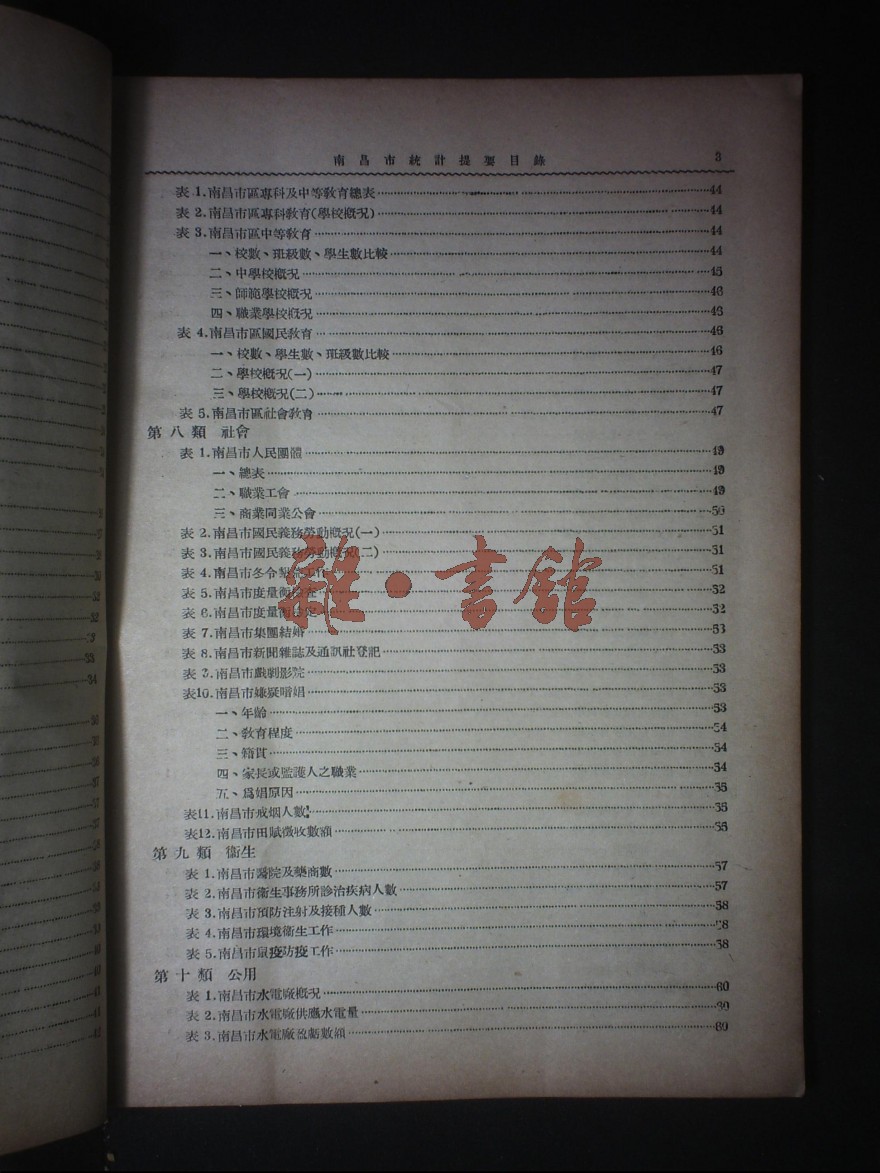 南昌市統計提要目錄 3
表 1.南昌市區專科及中等教育總表 44
表 2.南昌市區專科教育(學校概況) 44
表 3.南昌市區中等教育 44
一、校數、班級數、學生數比較 44
二、中學校概況 45
三、師範學校概況 46
四、職業學校概況 46
表 4.南昌市區國民教育 46
一、校數、學生數、班級數比較 46
二、學校概況(一) 47
三、學校概況(二) 47
表 5.南昌市區社會教育 47
第八類 社會
表 1.南昌市人民團體 49
一、總表 49
二、職業工會 49
三、商業同業公會 50
表 2.南昌市國民義務勞動概況(一) 51
表 3.南昌市國民義務勞動概況(二) 51
表 4.南昌市冬令 工作 51
表 5.南昌市度量衡檢查 52
表 6.南昌市度量衡檢定 52
表 7.南昌市集團結婚 53
表 8.南昌市新聞雜誌及通訊社登記 53
表 9.南昌市戲劇影院 53
表10.南昌市嫌疑暗娼 53
一、年齡 53
二、教育程度 54
三、籍貫 54
四、家長或監護人之職業 54
五、爲娼原因 55
表11.南昌市戒烟人數 55
表12.南昌市田賦徵收數額 55
第九類 衞生
表 1.南昌市醫院及藥商數 57
表 2.南昌市衞生事務所診治疾病人數 57
表 3.南昌市預防注射及接種人數 58
表 4.南昌市環境衞生工作 58
表 5.南昌市鼠疫防疫工作 58
第十類 公用
表 1.南昌市水電廠概況 60
表 2.南昌市水電廠供應水電量 60
表 3.南昌市水電廠盈虧數額 60
雜·書館